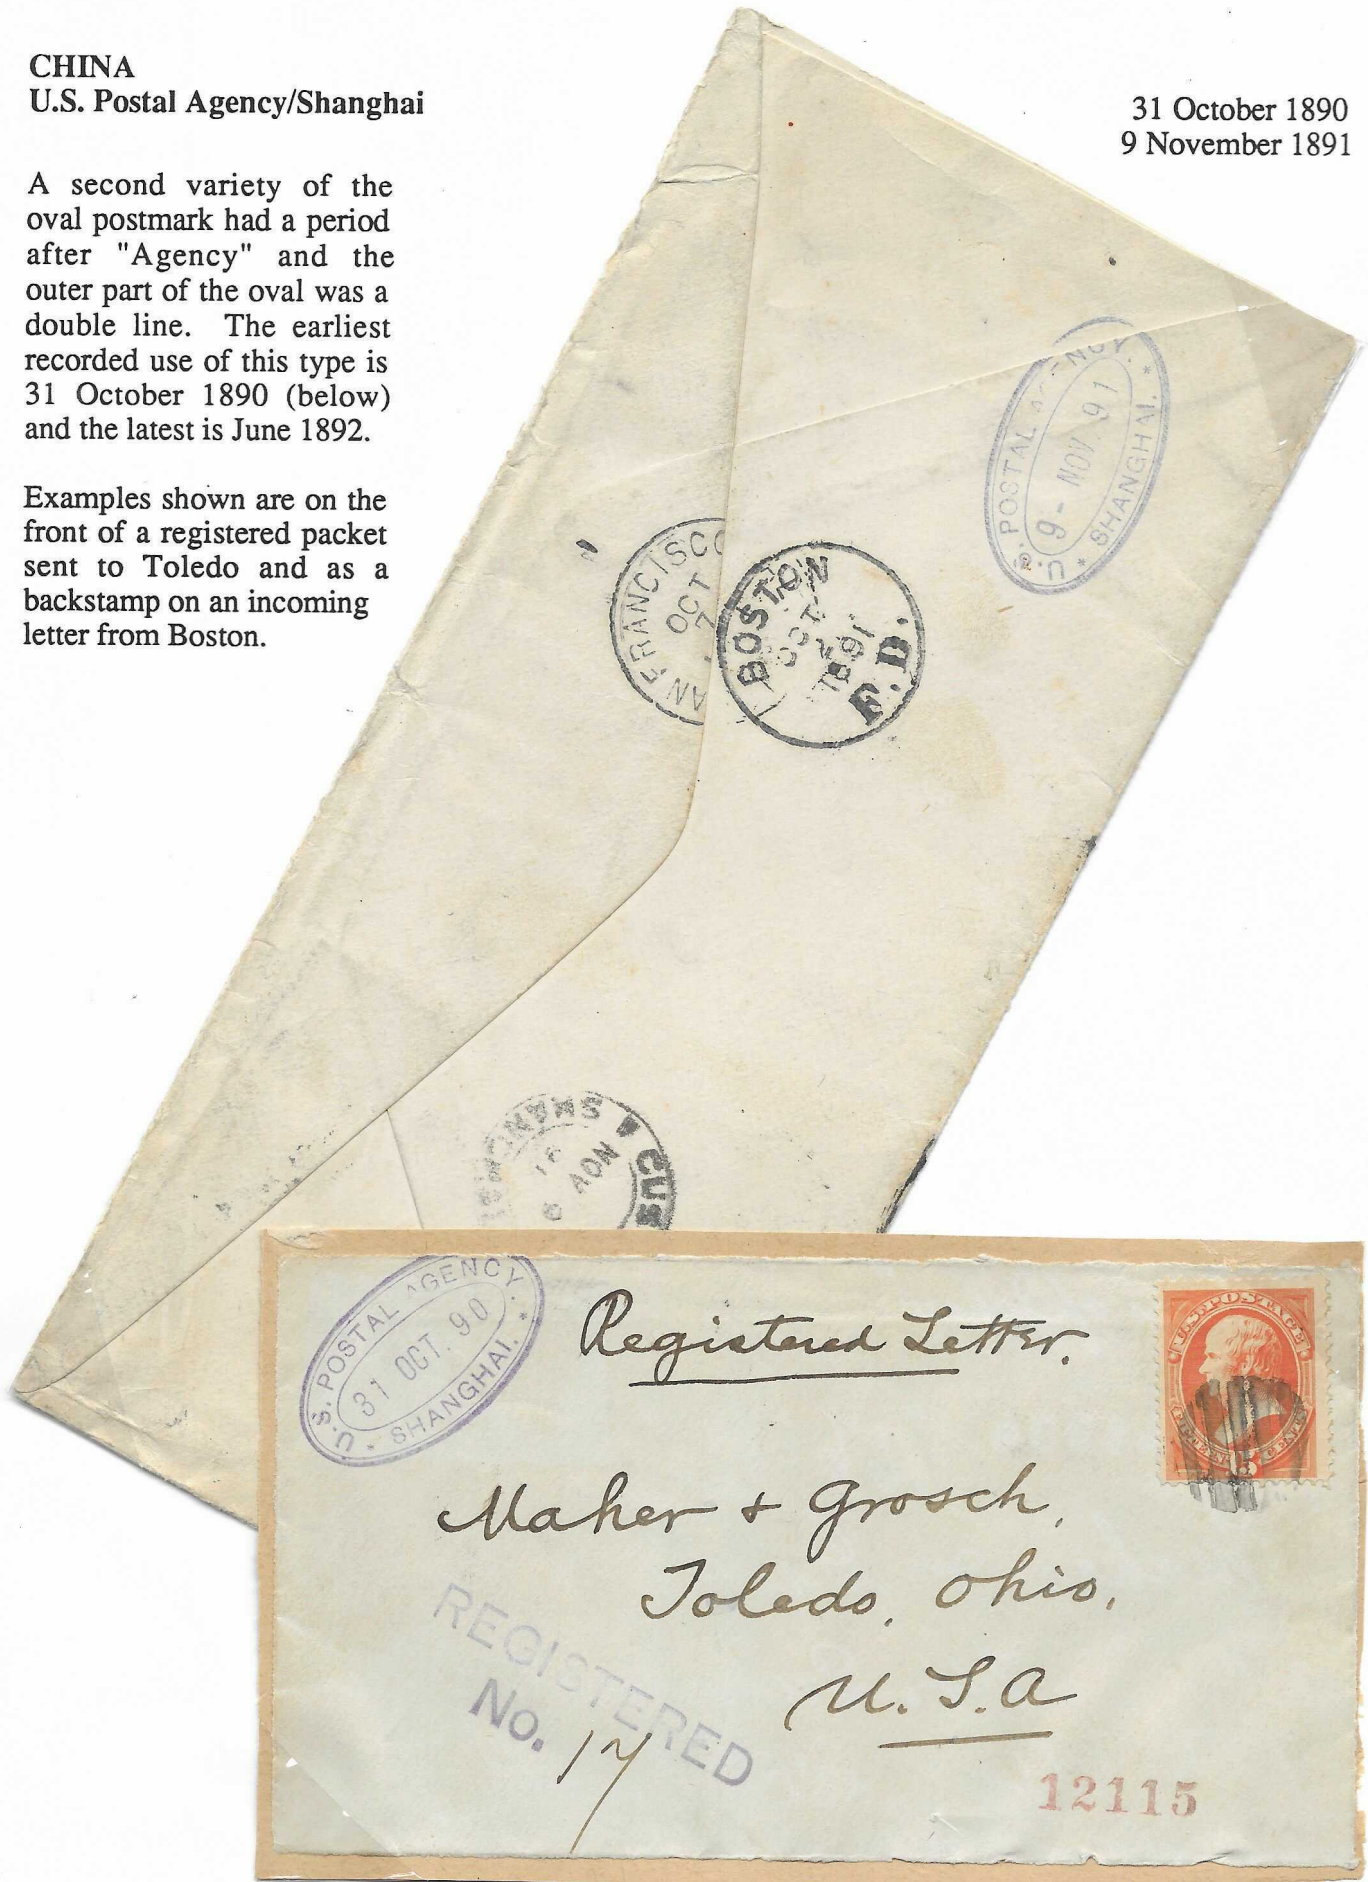 CHINA
U.S. Postal Agency/Shanghai
31 October 1890
9 November 1891
A second variety of the
oval postmark had a period
after "Agency" and the
outer part of the oval was a
double line. The earliest
recorded use of this type is
31 October 1890 (below)
and the latest is June 1892.
Examples shown are on the
front of a registered packet
sent to Toledo and as a
backstamp on an incoming
letter from Boston.
U.S. POSTAL AGENCY.
9 - NOV. 91
* SHANGHAI. *
AN FRANCISCO
OCT
7
BOSTON
OCT
1891
F.D.
CUS
NOV
91
U.S. POSTAL AGENCY.
31 OCT. 90
* SHANGHAI. *
Registered Letter.
U.S. POSTAGE
FIFTEEN CENTS
15
Maher + Grosch,
Toledo, Ohio,
U.S.A
REGISTERED
No. 17
12115